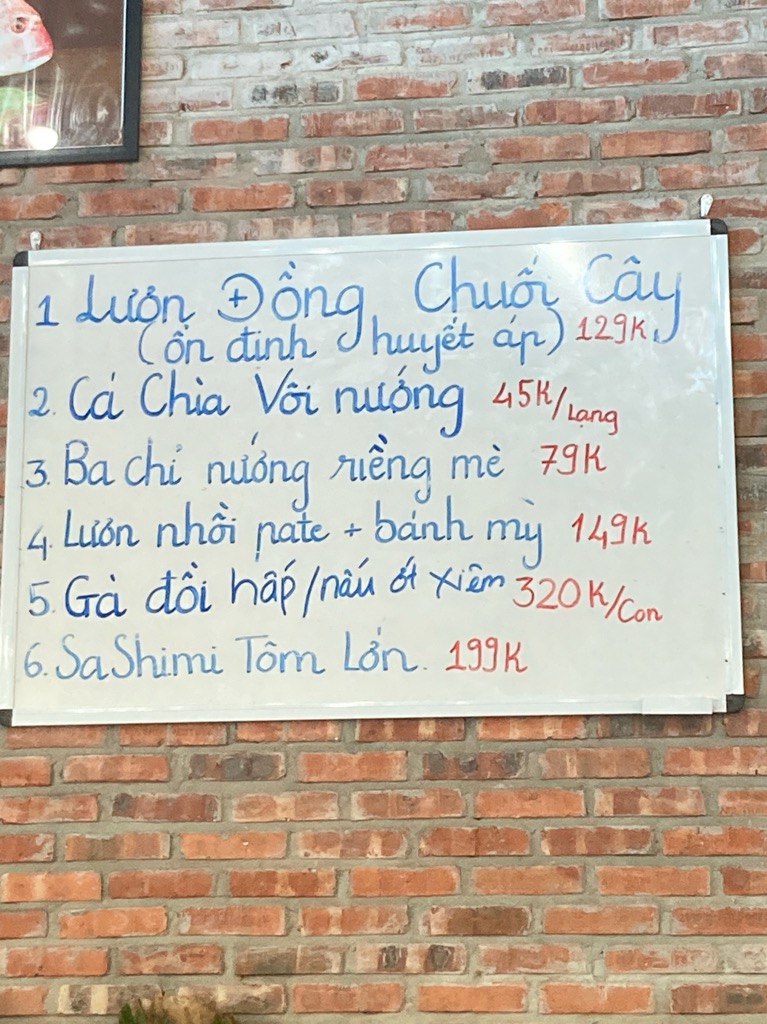 1 Lươn Đồng Chuối Cây
(ổn định huyết áp) 129K
2. Cá Chìa Vôi nướng 45K/Lạng
3. Ba chỉ nướng riềng mè 79K
4. Lươn nhồi pate + bánh mỳ 149K
5. Gà đồi hấp/nấu ớt xiêm 320K/Con
6. SaShimi Tôm Lớn. 199K